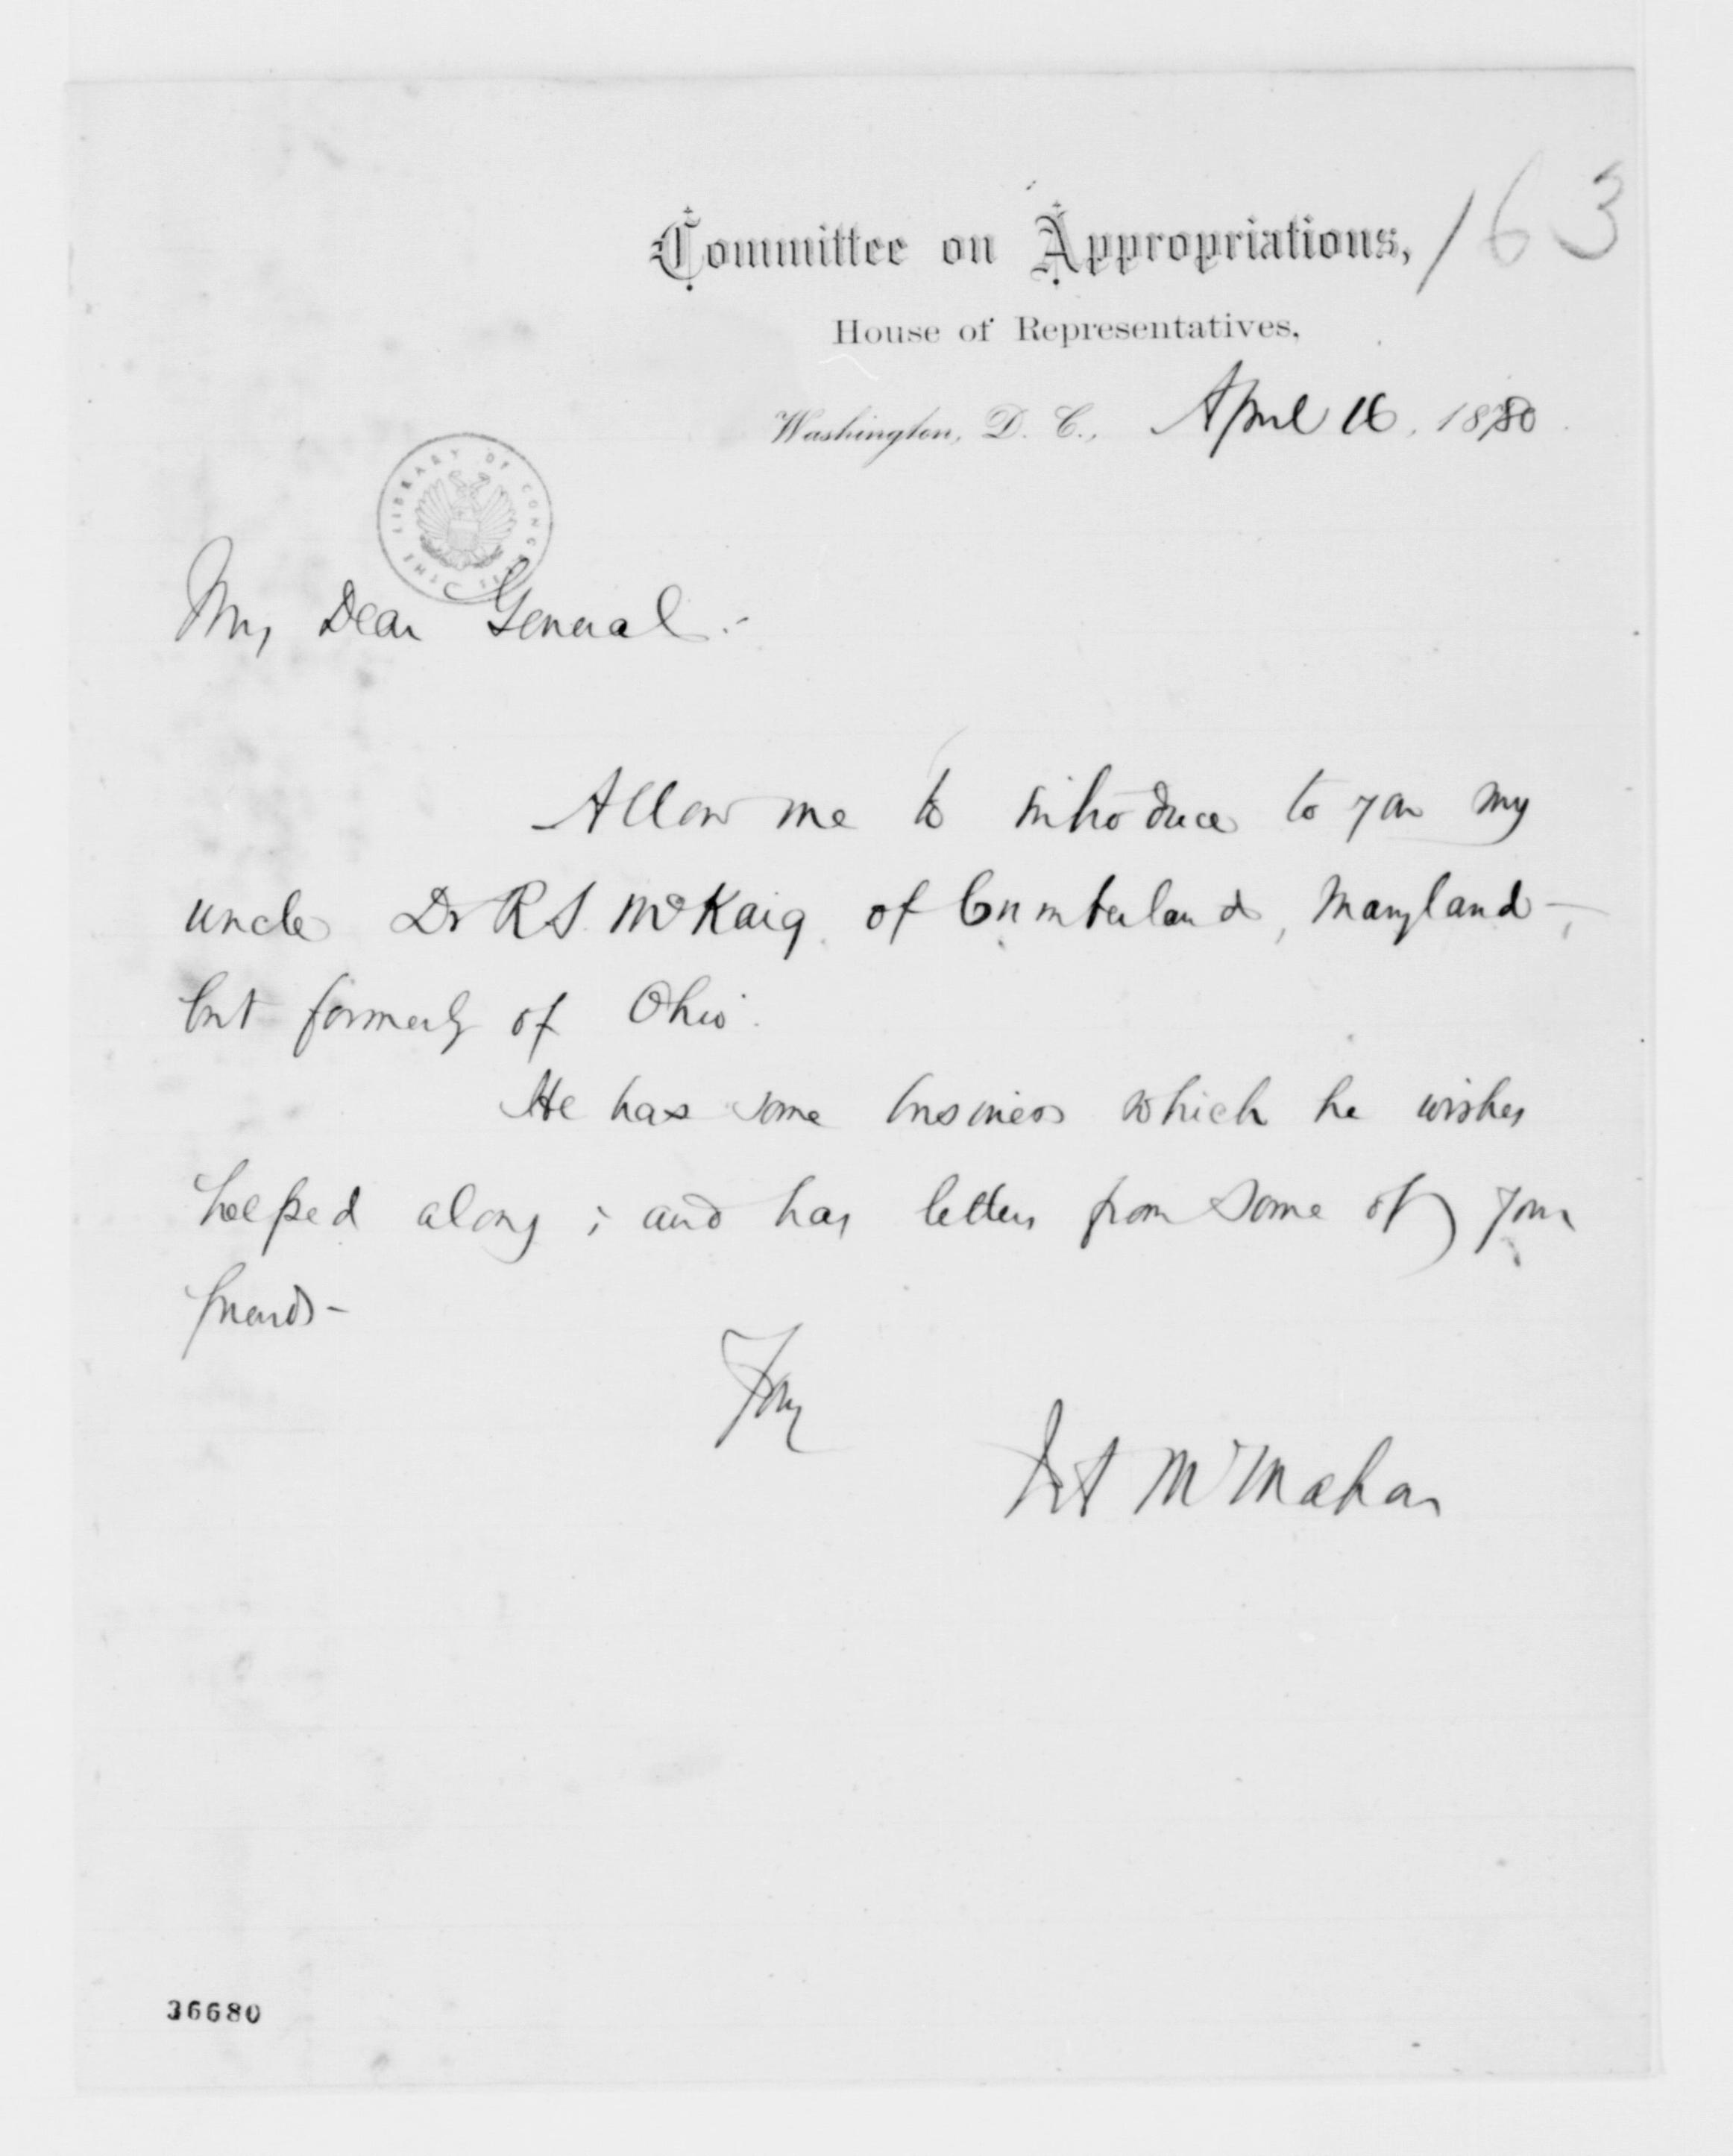 163
Committee on Appropriations,
House of Representatives,
Washington, D. C., April 16, 1880
THE LIBRARY OF CONGRESS
My Dear General:-
Allow me to introduce to you my
uncle Dr R S. McKaig of Cumberland, Maryland -,
but formerly of Ohio.
He has some business which he wishes
helped along; and has letters from some of your
friends -
JA McMahon
36680